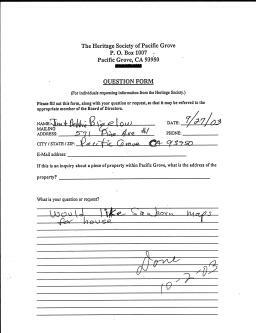 The Heritage Society of Pacific Grove
P. O. Box 1007
Pacific Grove, CA 93950
QUESTION FORM
(For individuals requesting information from the Heritage Society.)
Please fill out this form, along with your question or request, so that it may be referred to the
appropriate member of the Board of Directors.
NAME: Jim & Debbi Bigelow DATE: 9/27/03
MAILING
ADDRESS: 571 Ave #1 PHONE:
CITY / STATE / ZIP: Pacific Grove CA 93950
E-Mail address:
If this is an inquiry about a piece of property within Pacific Grove, what is the address of the
property?
What is your question or request?
Would like Sanborn maps
for house
Done
10-2-03